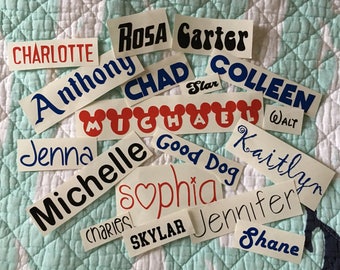 CHARLOTTE
ROSA
Carter
Anthony
CHAD
Star
COLLEEN
MICHAEL
Walt
Jenna
Michelle
Good Dog
Kaitlyn
sophia
Charles
SKYLAR
Jennifer
Shane